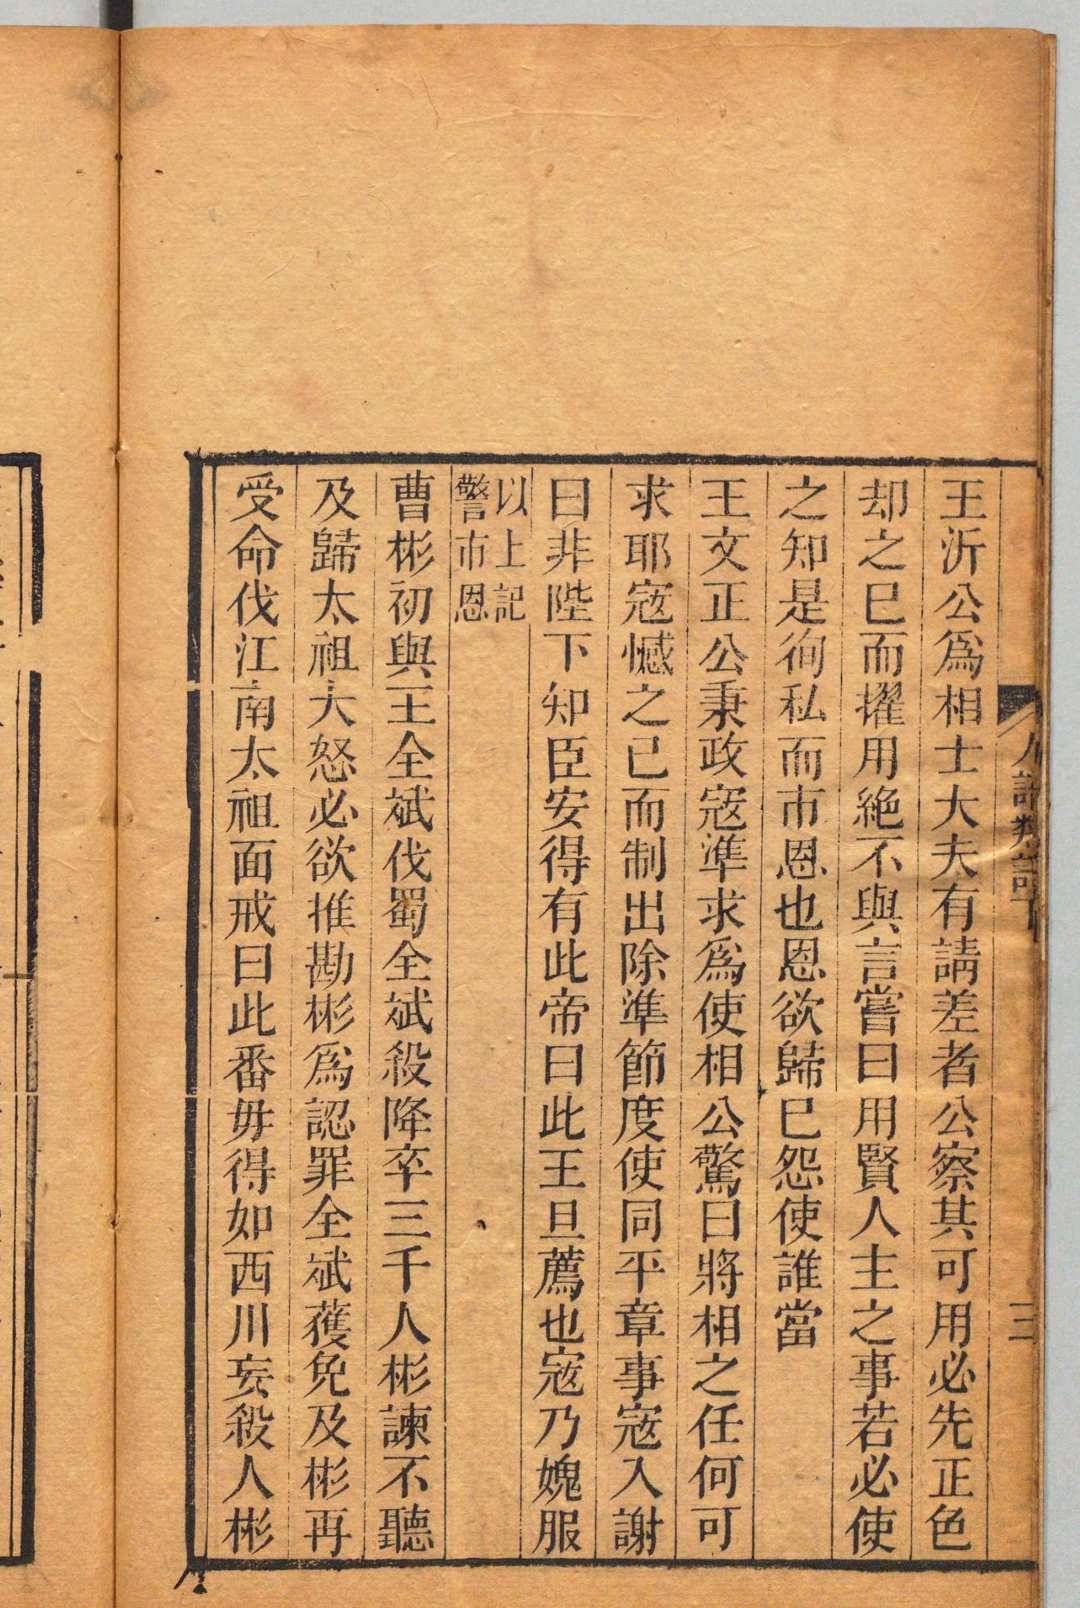 王沂公爲相士大夫有請差者公察其可用必先正色
却之巳而擢用絶不與言嘗曰用賢人主之事若必使
之知是徇私而市恩也恩欲歸巳怨使誰當
王文正公秉政寇準求爲使相公驚曰將相之任何可
求耶寇憾之已而制出除準節度使同平章事寇入謝
曰非陛下知臣安得有此帝曰此王旦薦也寇乃媿服
以上記
警市恩
曹彬初與王全斌伐蜀全斌殺降卒三千人彬諫不聽
及歸太祖大怒必欲推勘彬爲認罪全斌獲免及彬再
受命伐江南太祖面戒曰此番毋得如西川妄殺人彬